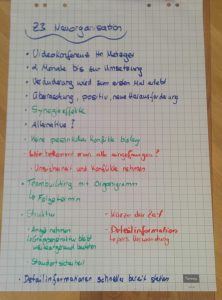 Z3 Neuorganisation
• Videokonferenz Hr Metzger
• 2 Monate bis zur Umsetzung
• Veränderung wird zum ersten Mal erlebt
• Überraschung, positiv, neue Herausforderung
• Synergieeffekte
• Alternative?
• keine persönliche Konflikte
• Wie bekommt man alle eingefangen?
• Unsicherheit und Konflikte nehmen
• Teambuilding mit Organigramm
↳ Folgetermin
• Struktur
• Kürze der Zeit
• Angst nehmen
bleibt
• Detailinformation
Verwendung
• Standortsicherheit
• Detailinformationen schneller bereit stellen